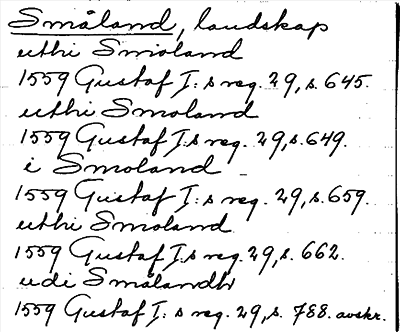 Småland, landskap
uthi Smioland
1559 Gustaf I:s reg. 29, s. 645.
uthi Smoland
1559 Gustaf I:s reg. 29, s. 649.
i Smoland
1559 Gustaf I:s reg. 29, s. 659.
uthi Smoland
1559 Gustaf I:s reg. 29, s. 662.
udi Smålandh
1559 Gustaf I:s reg. 29, s. 788. avskr.